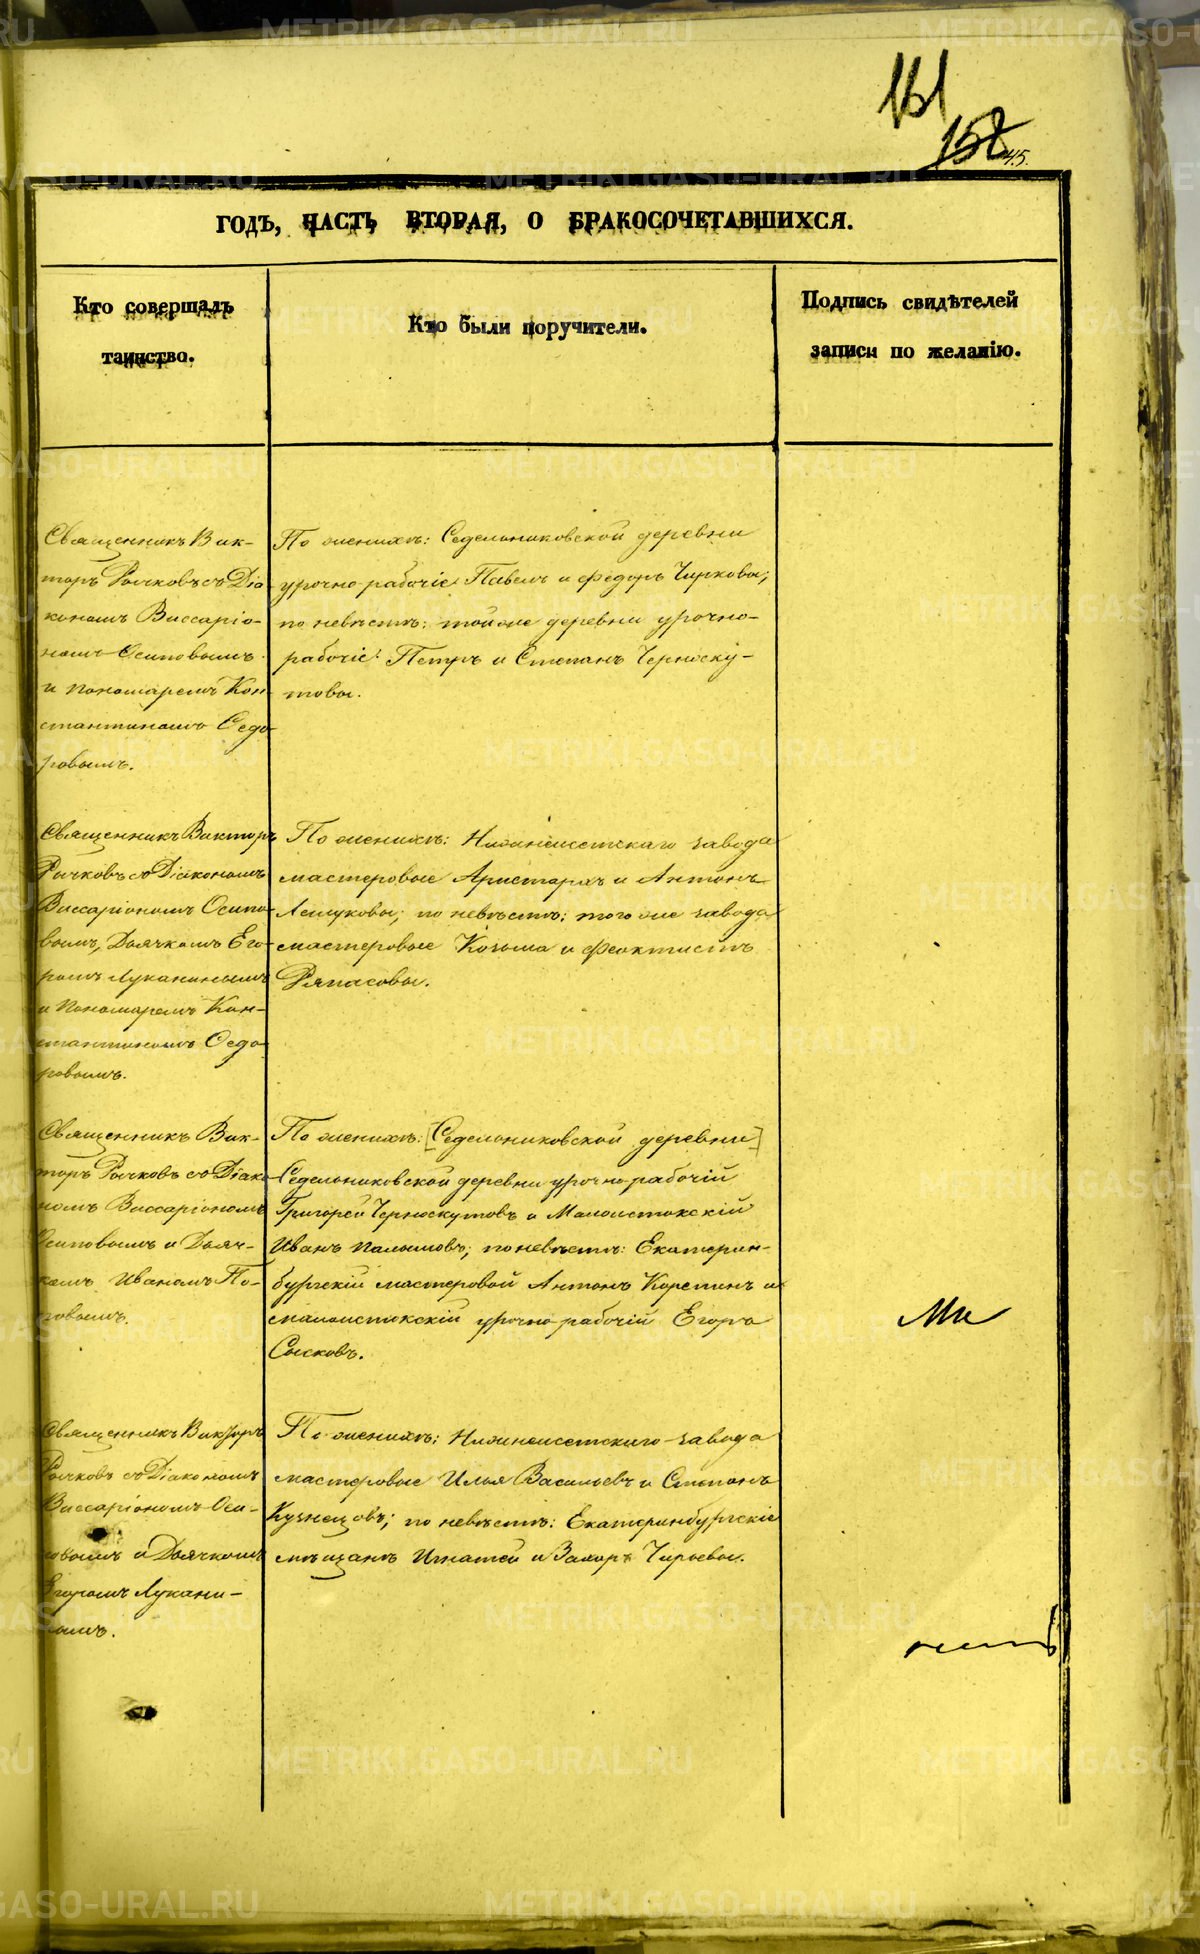 161
158
45.
ГОДЪ, ЧАСТЬ ВТОРАЯ, О БРАКОСОЧЕТАВШИХСЯ.
Кто совершалъ
таинство.
Кто были поручители.
Подпись свидѣтелей
записи по желанію.
Священникъ Вик-
торъ Рычковъ съ Діа
кономъ Виссаріо-
номъ Осиповымъ
и пономаремъ Кон-
стантиномъ Ѳедо
ровымъ.
По женихѣ: Седельниковской деревни
урочно-рабочіе Павелъ и Федоръ Чирковы;
по невѣстѣ: тойже деревни урочно-
рабочіе: Петръ и Степанъ Черноску-
товы.
Священникъ Викторъ
Рычковъ съ Діакономъ
Виссаріономъ Осипо-
вымъ, Дьячкомъ Его-
ромъ Луканинымъ
и Пономаремъ Кон-
стантиномъ Ѳедо
ровымъ.
По женихѣ: Нижнеисетскаго завода
мастеровые Аристархъ и Антонъ
по невѣстѣ: того же завода
мастеровые Козьма и Феоктистъ
Ряпасовы.
Священникъ Вик-
торъ Рычковъ съ Діако
номъ Виссаріономъ
Осиповымъ и Дьяч-
комъ Иваномъ По-
повымъ.
По женихѣ: [Седельниковской деревни]
Седельниковской деревни урочно-рабочій
Григорей Черноскутовъ и Малоистокскій
Иванъ по невѣстѣ: Екатерин-
бургскій мастеровой Антонъ Корепинъ и
малоистокскій урочно-рабочій Егоръ
Сысковъ.
Священникъ Викторъ
Рычковъ съ Діакономъ
Виссаріономъ Оси-
повымъ и Дьячкомъ
Егоромъ Лукани-
нымъ.
По женихѣ: Нижнеисетскаго завода
мастеровые Илья Васильевъ и Степанъ
Кузнецовъ; по невѣстѣ: Екатеринбургскіе
мѣщанъ Игнатей и Захаръ Чирьевы.
METRIKI.GASO-URAL.RU